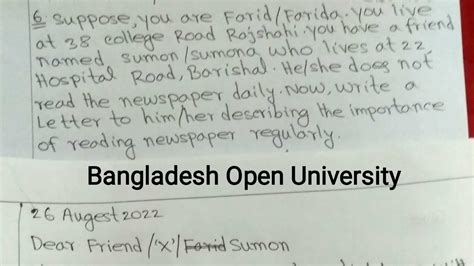 6 Suppose, you are Farid/Farida. You live
at 38 college Road Rajshahi. You have a friend
named sumon/sumona who lives at 22,
Hospital Road, Barishal. He/she does not
read the newspaper daily. Now, write a
Letter to him/her describing the importance
of reading newspaper regularly.
Bangladesh Open University
26 Augest 2022
Dear Friend/'X'/Farid Sumon